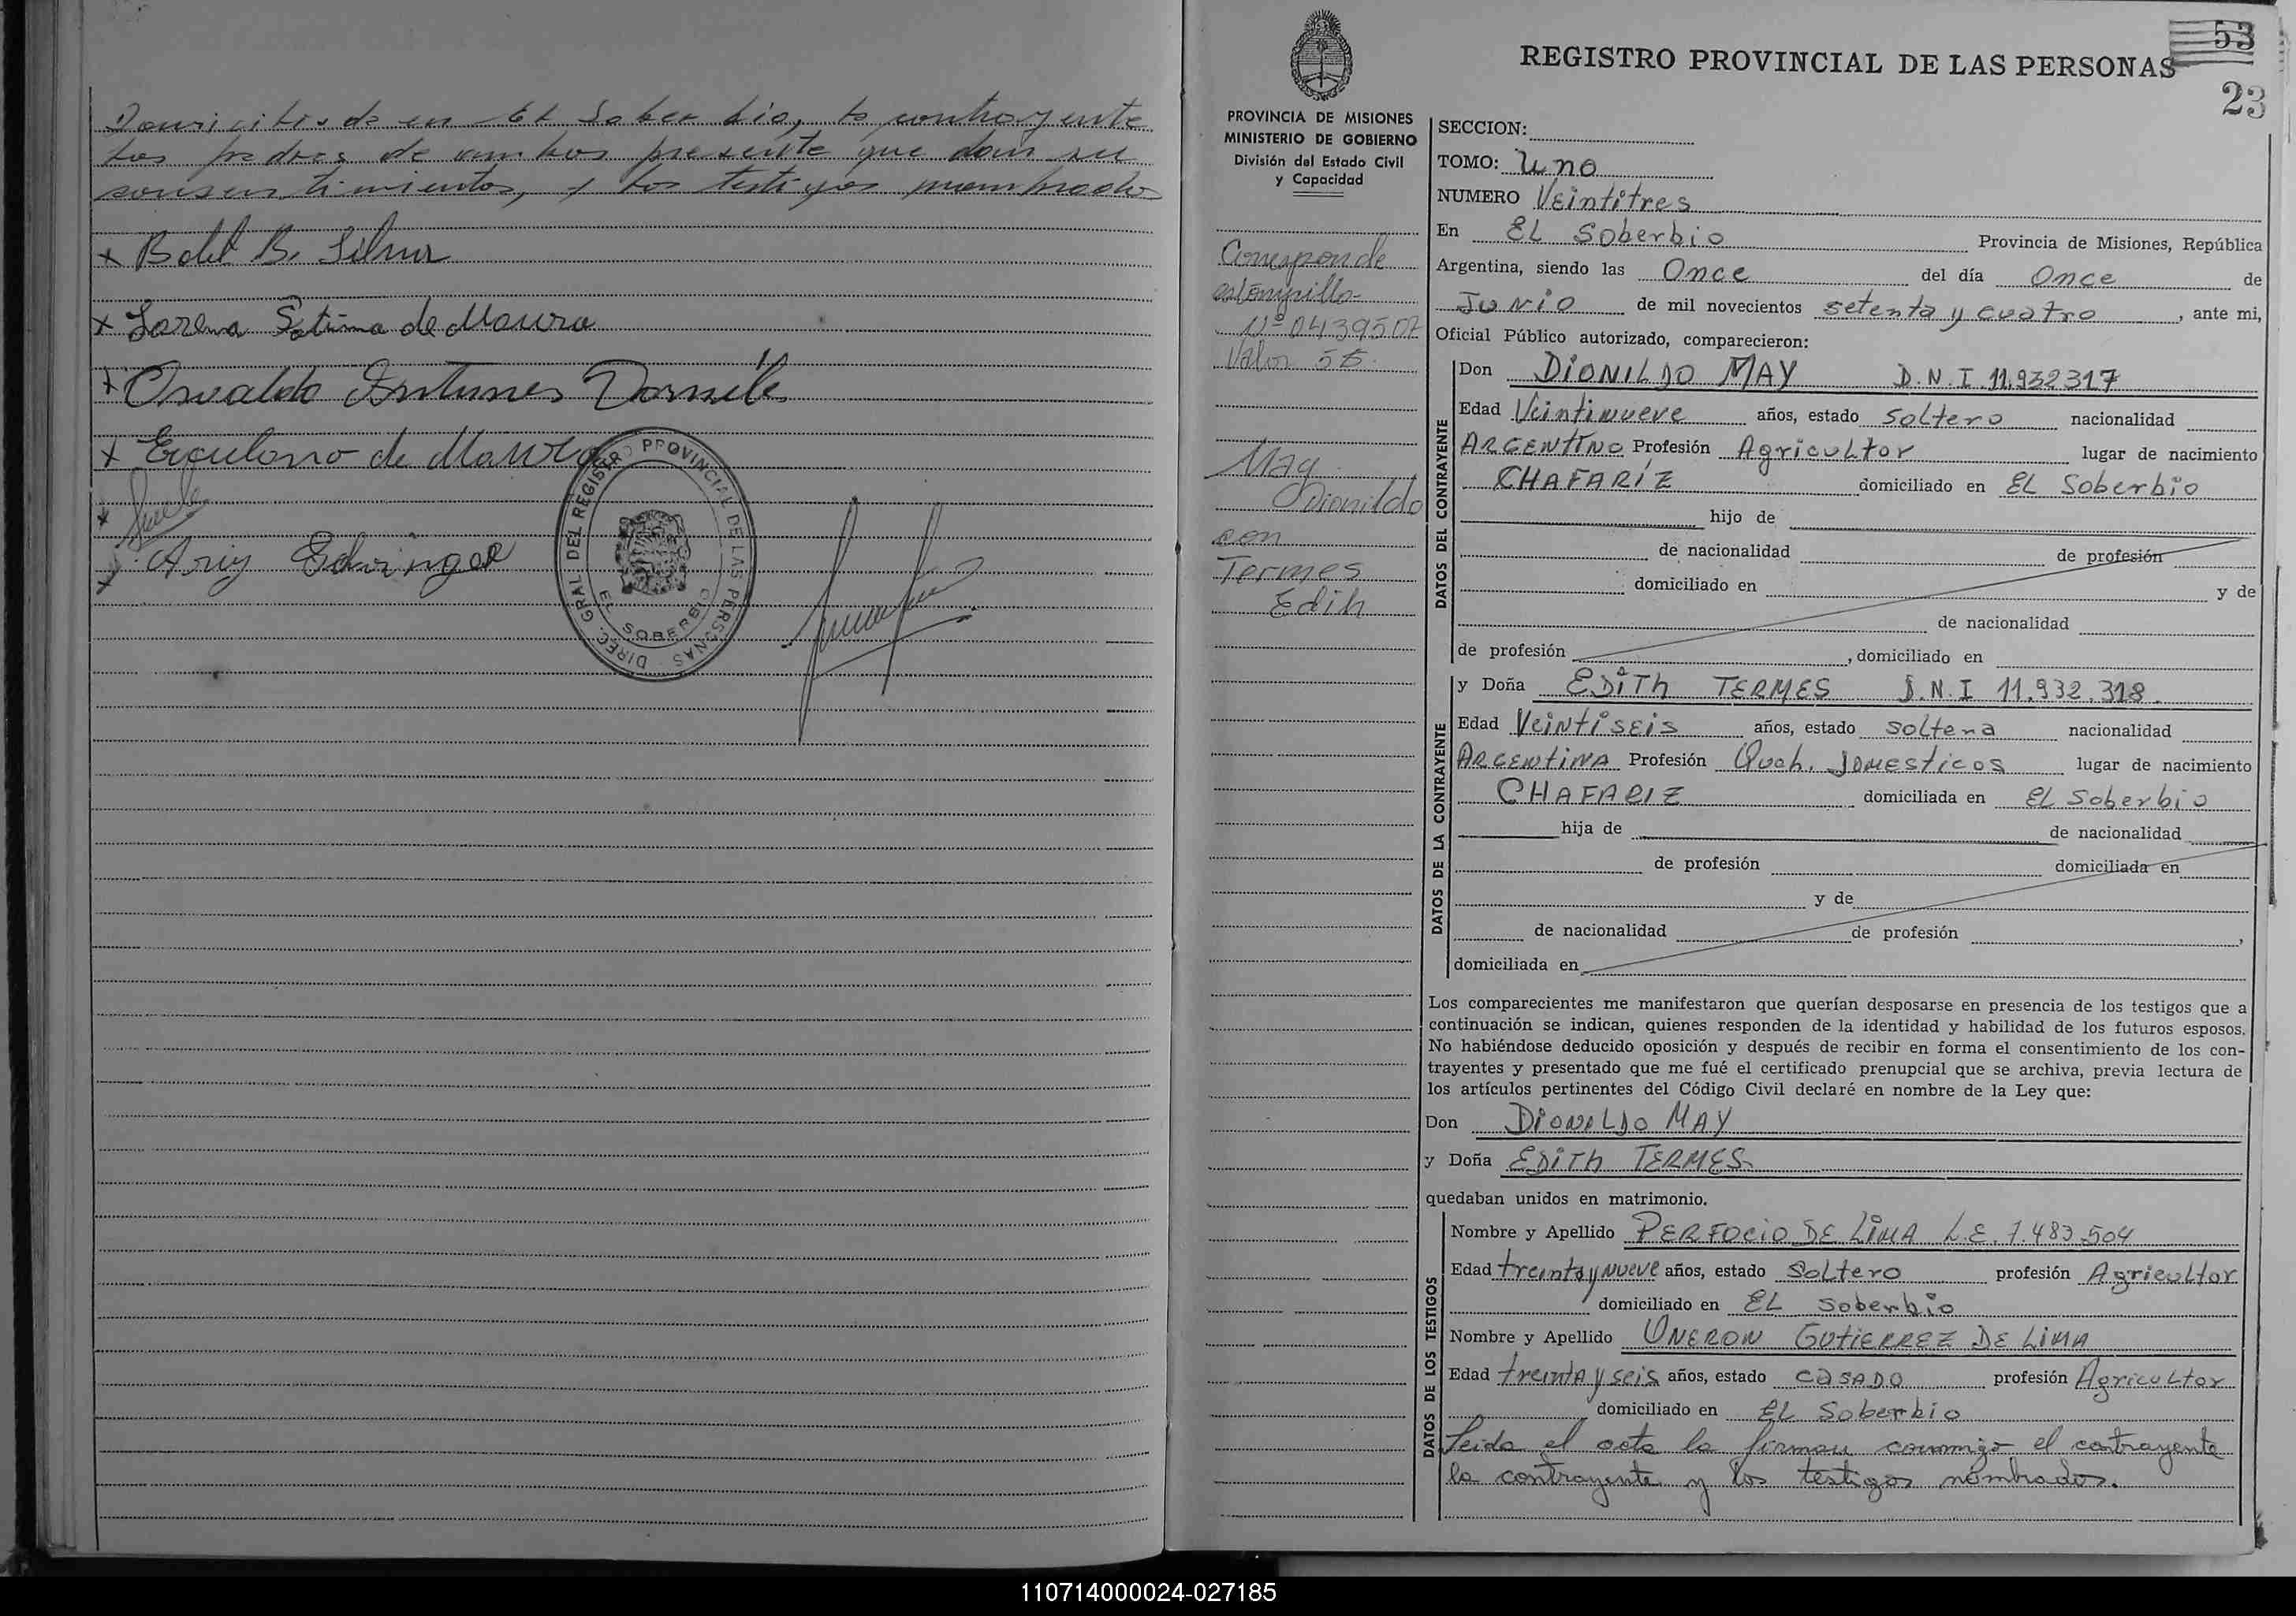 Domiciliado en El Soberbio, la contrayente
los padres de ambos presente que dan su
consentimientos, y los testigos nombrados
x Bdel B. Silva
x Lorena Fatima de Moura
x Osvaldo Antunes Dornelles
x Erculano de Moura
x
x Ariy Edvinger
DIREC. GRAL DEL REGISTRO PROVINCIAL DE LAS PERSONAS
EL SOBERBIO
53
23
REGISTRO PROVINCIAL DE LAS PERSONAS
PROVINCIA DE MISIONES
MINISTERIO DE GOBIERNO
División del Estado Civil
y Capacidad
Corresponde
estampilla
Nº 0439507
Valor 5$.
May
Dionildo
con
Termes
Edih
SECCION:
TOMO: Uno
NUMERO Veintitres
En EL Soberbio Provincia de Misiones, República
Argentina, siendo las Once del día Once de
Junio de mil novecientos setenta y cuatro, ante mi,
Oficial Público autorizado, comparecieron:
DATOS DEL CONTRAYENTE
Don DIONILDO MAY D.N.I 11.932317
Edad Veintinueve años, estado soltero nacionalidad
ARGENTINO Profesión Agricultor lugar de nacimiento
CHAFARIZ domiciliado en EL Soberbio
hijo de
de nacionalidad de profesión
domiciliado en y de
de nacionalidad
de profesión , domiciliado en
DATOS DE LA CONTRAYENTE
y Doña EDITH TERMES D.N.I 11.932.318
Edad Veintiseis años, estado soltera nacionalidad
ARGENTINA Profesión Queh. Domesticos lugar de nacimiento
CHAFARIZ domiciliada en EL Soberbio
hija de de nacionalidad
de profesión domiciliada en
y de
de nacionalidad de profesión ,
domiciliada en
Los comparecientes me manifestaron que querían desposarse en presencia de los testigos que a
continuación se indican, quienes responden de la identidad y habilidad de los futuros esposos.
No habiéndose deducido oposición y después de recibir en forma el consentimiento de los con-
trayentes y presentado que me fué el certificado prenupcial que se archiva, previa lectura de
los artículos pertinentes del Código Civil declaré en nombre de la Ley que:
Don DIONILDO MAY
y Doña EDITH TERMES
quedaban unidos en matrimonio.
DATOS DE LOS TESTIGOS
Nombre y Apellido PERFOCIO DE LIMA L.E. 7.483.504
Edad treinta y nueve años, estado Soltero profesión Agricultor
domiciliado en EL Soberbio
Nombre y Apellido ONERON GUTIERREZ DE LIMA
Edad treinta y seis años, estado CASADO profesión Agricultor
domiciliado en EL Soberbio
Leida el acta la firman conmigo el contrayente
la contrayente y los testigos nombrados.
110714000024-027185